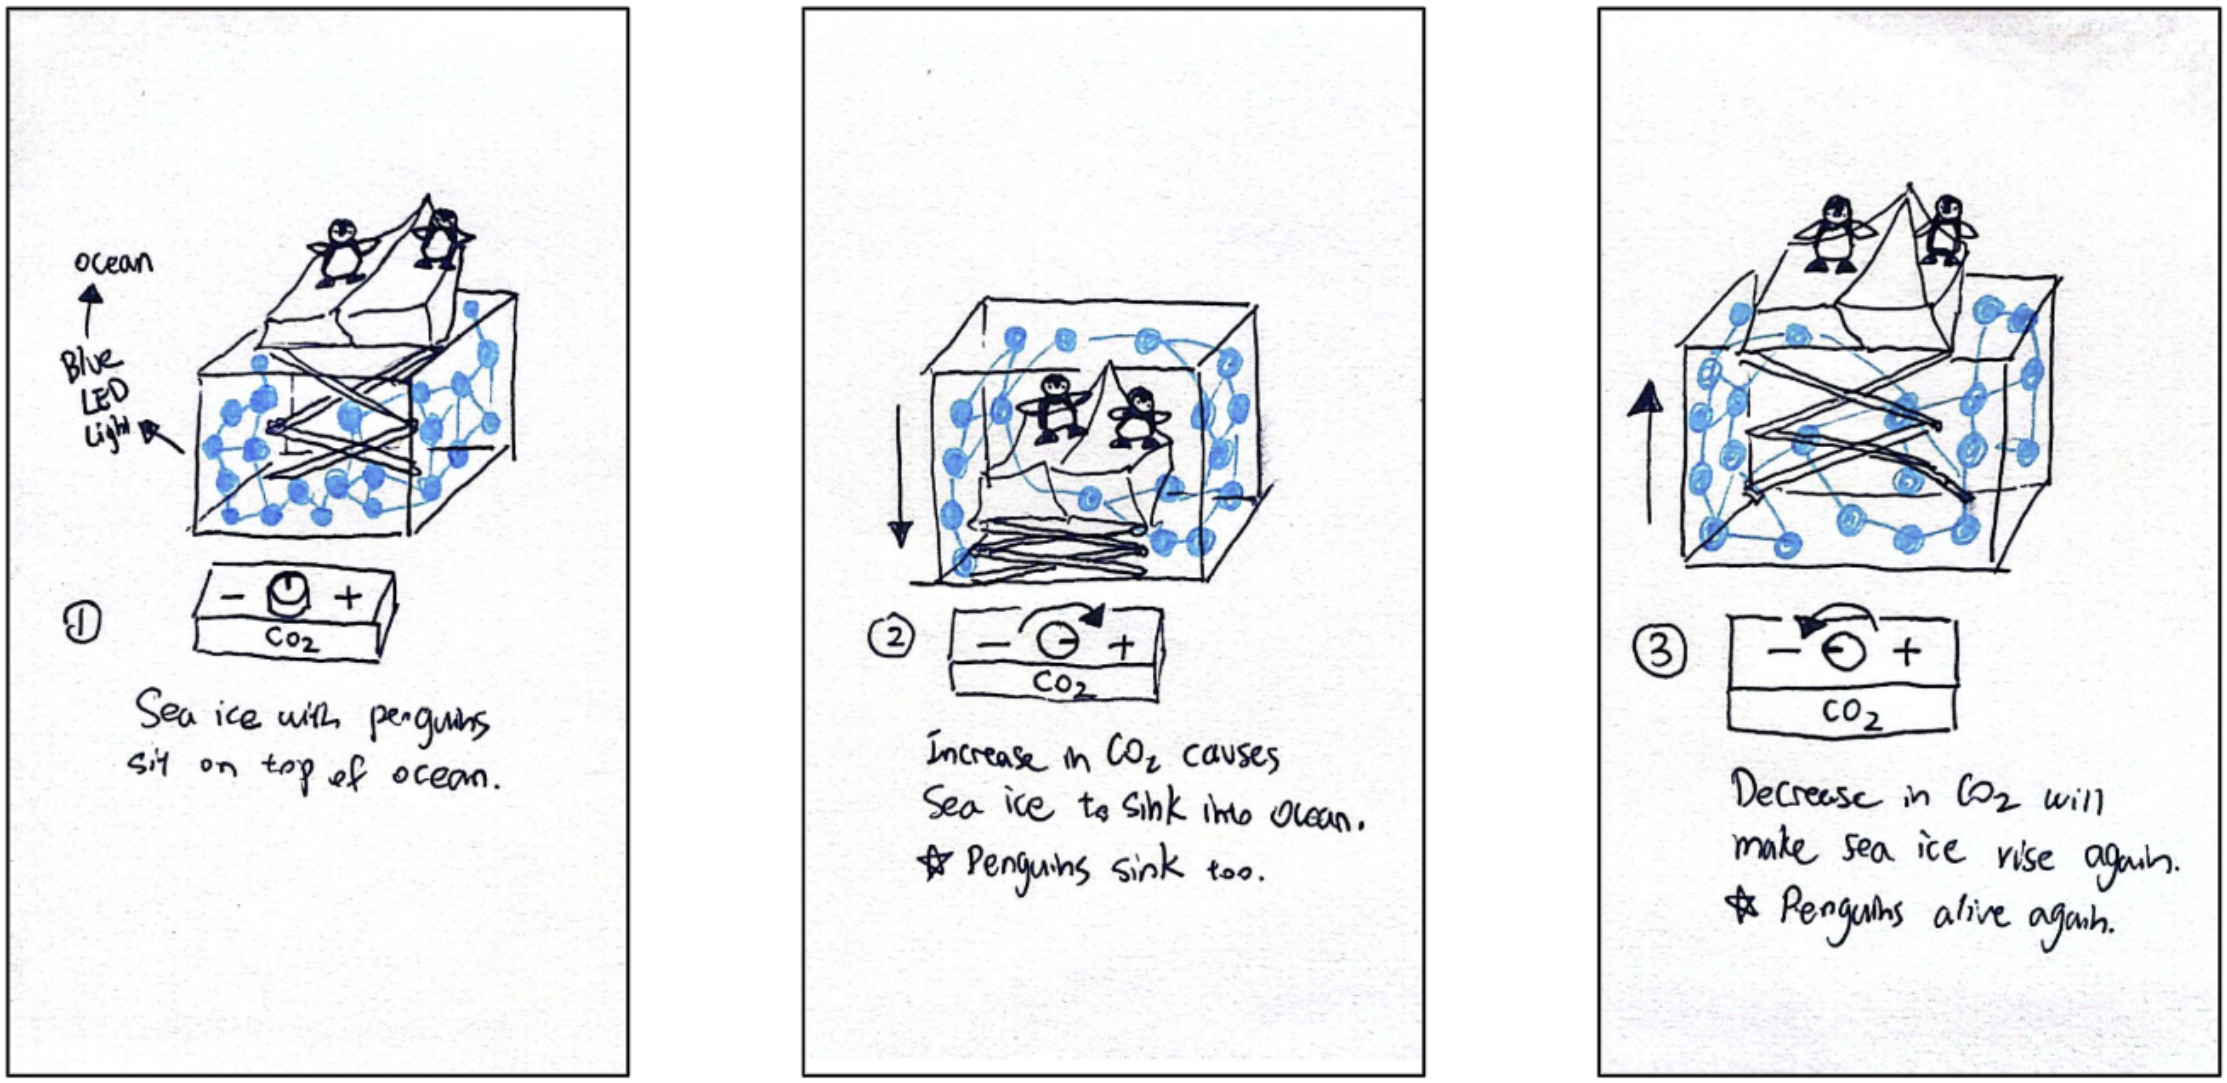 Ocean
Blue
LED
Light
- +
CO2
①
Sea ice with penguins
sit on top of ocean.
- +
②
CO2
Increase in CO2 causes
Sea ice to sink into Ocean.
☆ Penguins sink too.
- +
③
CO2
Decrease in CO2 will
make sea ice rise again.
☆ Penguins alive again.